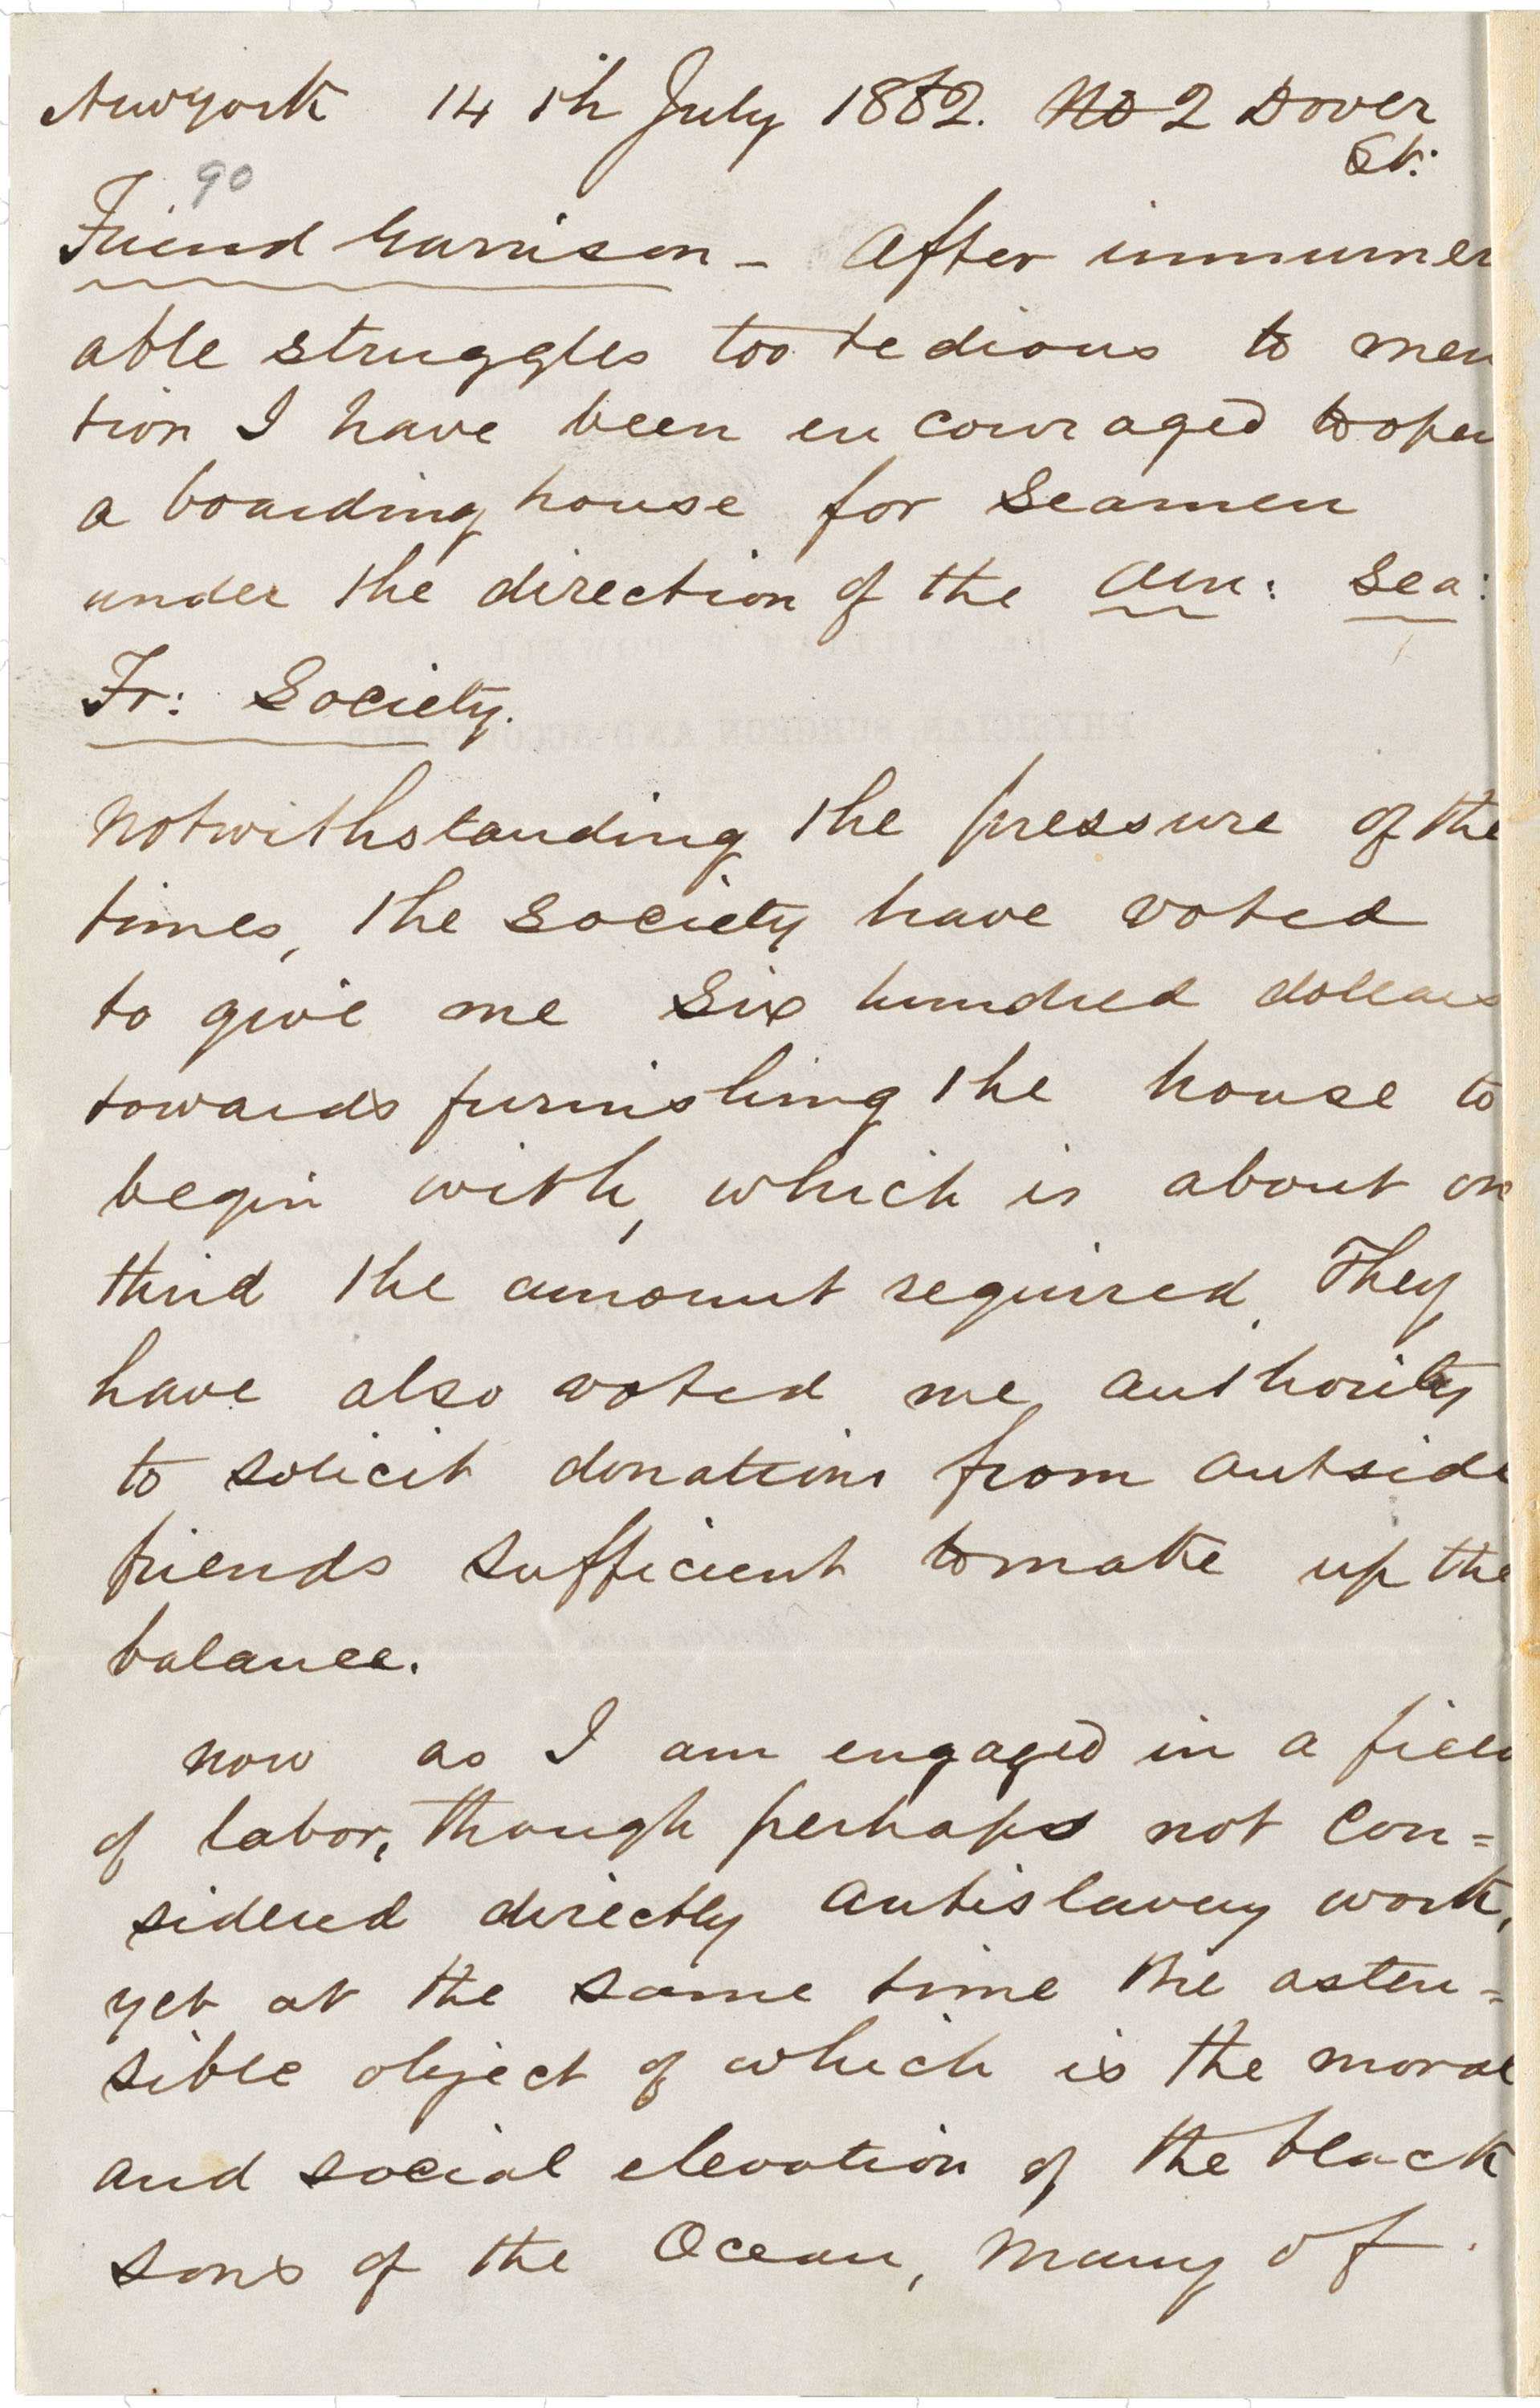 Newyork 14 th July 1862. No 2 Dover
St:
90
Friend Garrison - After innumer
able struggles too tedious to men
tion I have been encouraged to open
a boarding house for Seamen
under the direction of the Am: Sea:
Fr: Society.
Notwithstanding the pressure of the
times, the Society have voted
to give me Six hundred dollars
towards furnishing the house to
begin with, which is about on
third the amount required. They
have also voted me authority
to solicit donations from outside
friends sufficient to make up the
balance.
Now as I am engaged in a field
of labor, though perhaps not Con=
sidered directly antislavery work,
yet at the same time the osten=
sible object of which is the moral
and social elevation of the black
sons of the Ocean, Many of